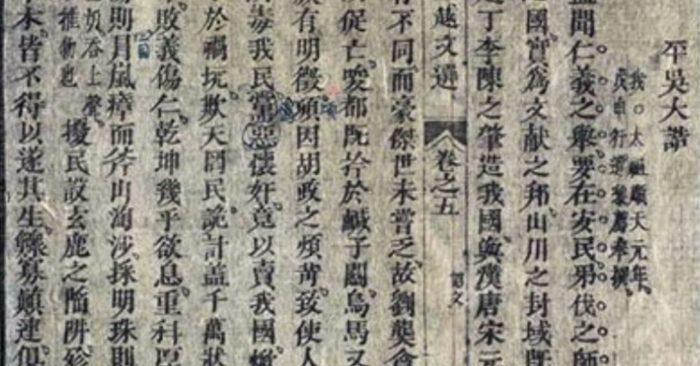 平吳大誥
我太祖順天元年。
行遣黎廌奉撰。
蓋聞仁義之舉要在安民弔伐之師
國實為文獻之邦山川之封域既
之丁李陳之肇造我國與漢唐宋元
越文選 卷之五 誥文
有不同而豪傑世未嘗乏故劉龔貪
促亡唆都既擒於鹹子關烏馬又
有明徵頃因胡政之煩苛致使人
毒我民黨惡懷奸竟以賣我國
於禍坑欺天罔民詭計蓋千萬狀
敗義傷仁乾坤幾乎欲息重科厚
則冒嵐瘴而斧山淘沙採明珠則
擾民設玄鹿之陷阱殄
木皆不得以遂其生鰥寡顛連俱